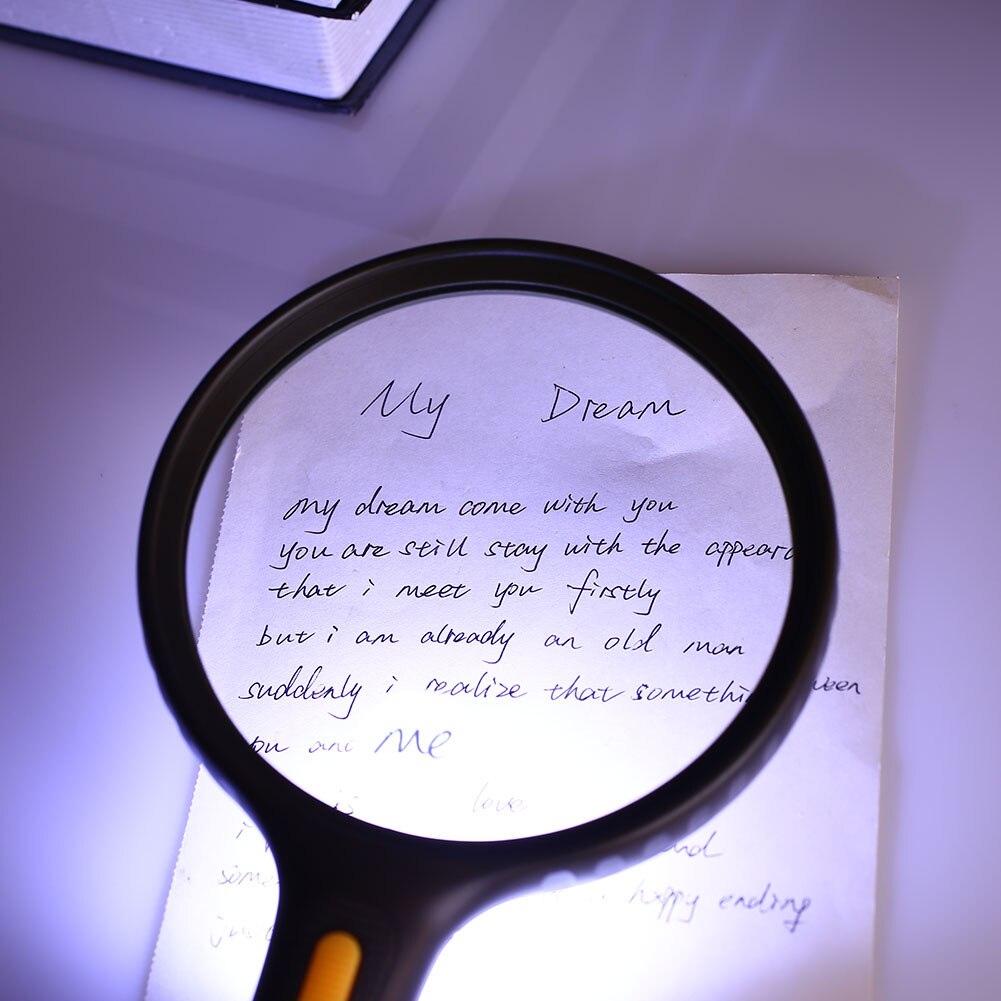 My Dream
my dream come with you
you are still stay with the
that i meet you firstly
but i am already an old man
suddenly i realize that
Me
is love
i
happy ending